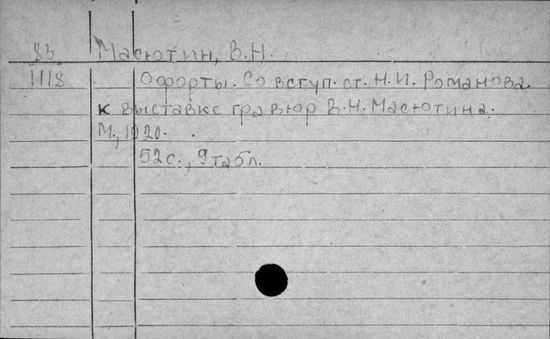 83 Масютин, В.Н.
1118 Офорты. Со вступ. ст. Н.И. Романова.
к выставке гравюр В.Н. Масютина.
М., 1920.
52с., 9 табл.